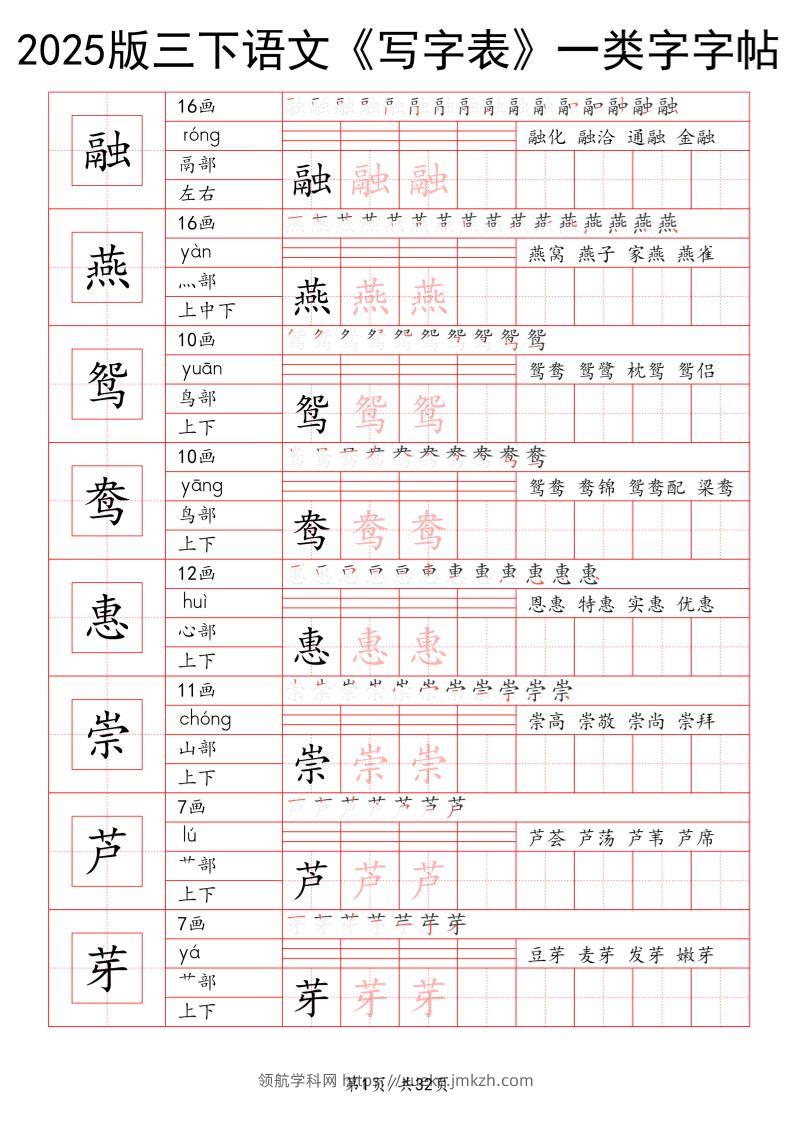 2025版三下语文《写字表》一类字字帖
融
16画
róng
融化 融洽 通融 金融
鬲部
左右
融 融 融
燕
16画
yàn
燕窝 燕子 家燕 燕雀
灬部
上中下
燕 燕 燕
鸳
10画
yuān
鸳鸯 鸳鹭 枕鸳 鸳侣
鸟部
上下
鸳 鸳 鸳
鸯
10画
yāng
鸳鸯 鸯锦 鸳鸯配 梁鸯
鸟部
上下
鸯 鸯 鸯
惠
12画
huì
恩惠 特惠 实惠 优惠
心部
上下
惠 惠 惠
崇
11画
chóng
崇高 崇敬 崇尚 崇拜
山部
上下
崇 崇 崇
芦
7画
lú
芦荟 芦荡 芦苇 芦席
艹部
上下
芦 芦 芦
芽
7画
yá
豆芽 麦芽 发芽 嫩芽
艹部
上下
芽 芽 芽
领航学科网 https://xueke.jmkzh.com
第1页/共32页